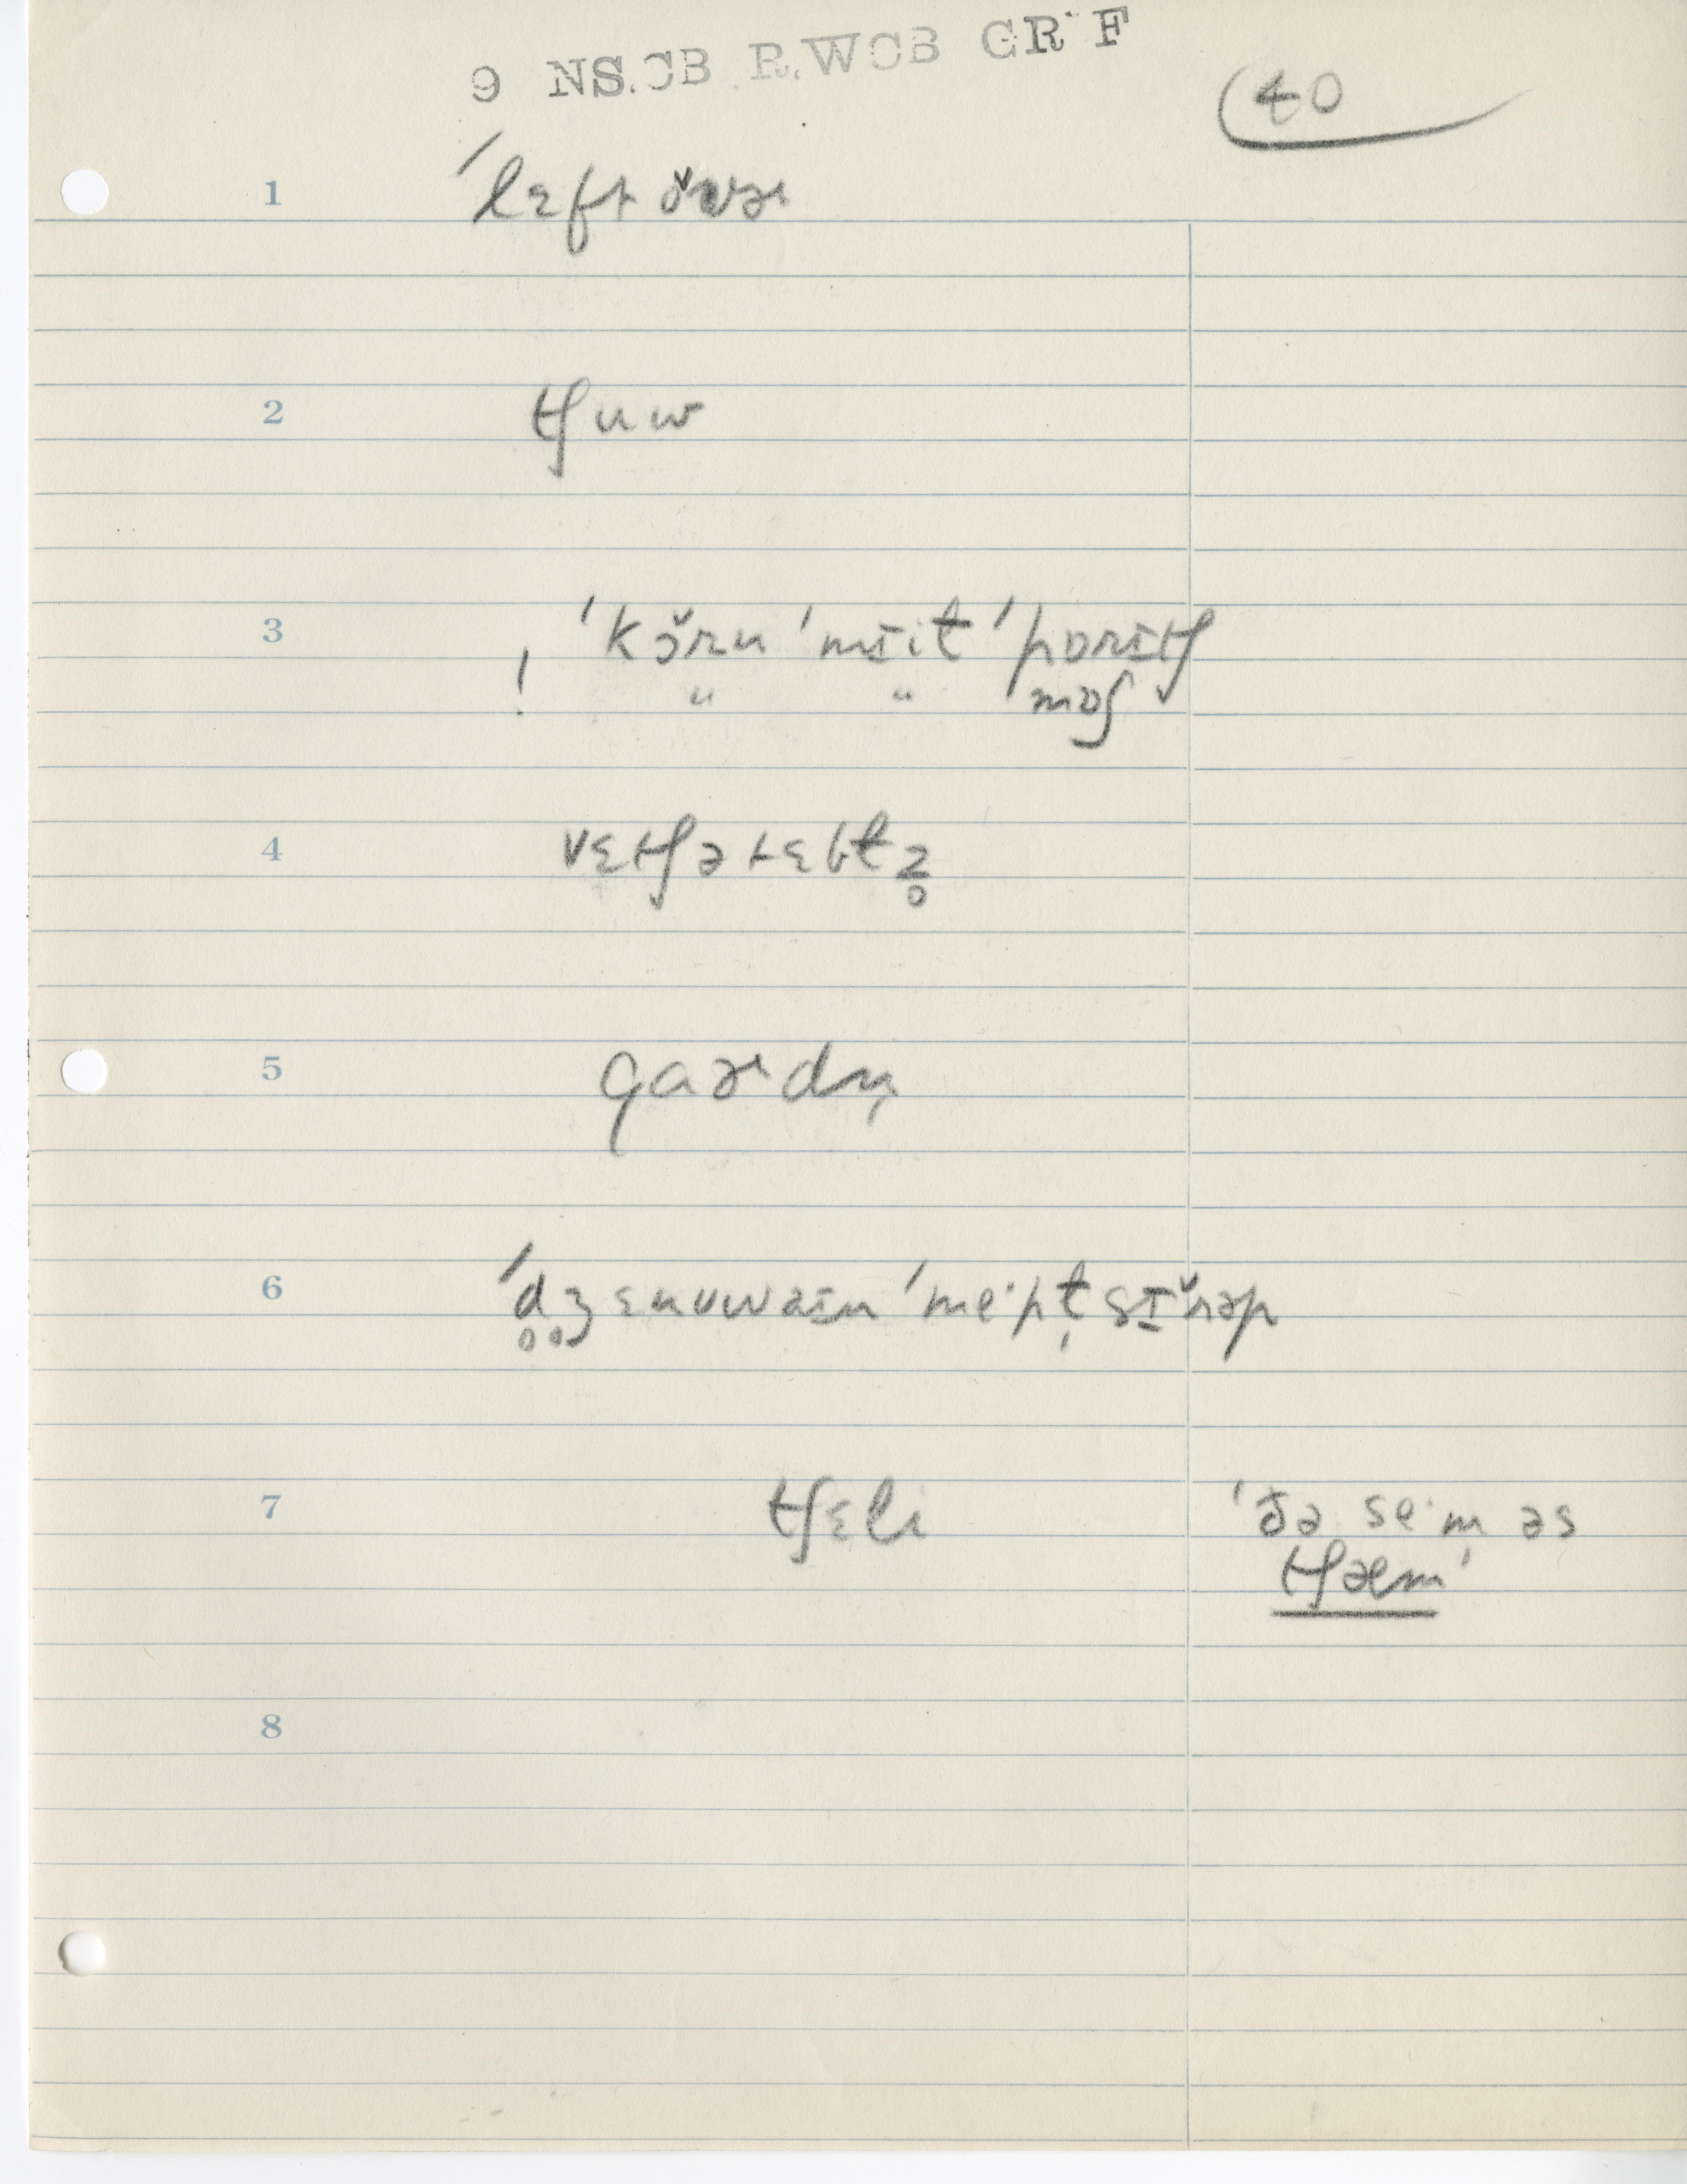 9 NS.CB R.WCB GR F
40
1 ˈlɛft ǒvɚ
2 tʃuw
3 ˈkɔ̌rn ˈmɪit ˈpɒrɪtʃ
! " " mɒʃ
4 vɛtʃətɛbɫz̥
5 gaɚdn̩
6 ˈd̥ʒ̊ɛnuwaɪn ˈmeˑpɫ̩ sɪ̌rəp
7 tʃɛlɪ
ˈðə seˑm̩ əs
tʃæm
8